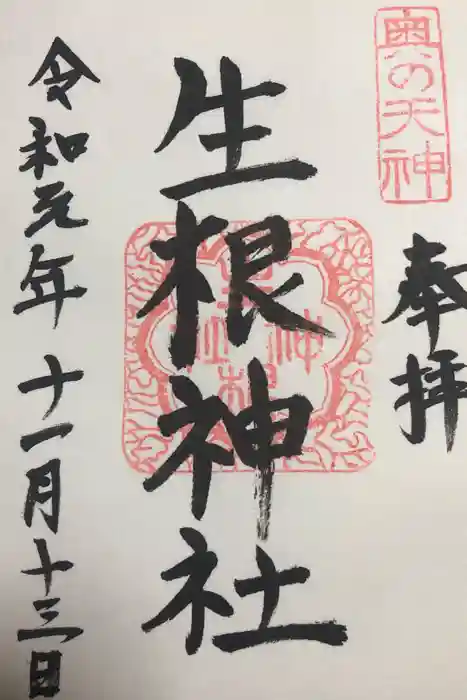 奥の天神
奉拝
生根神社
令和元年十一月十三日